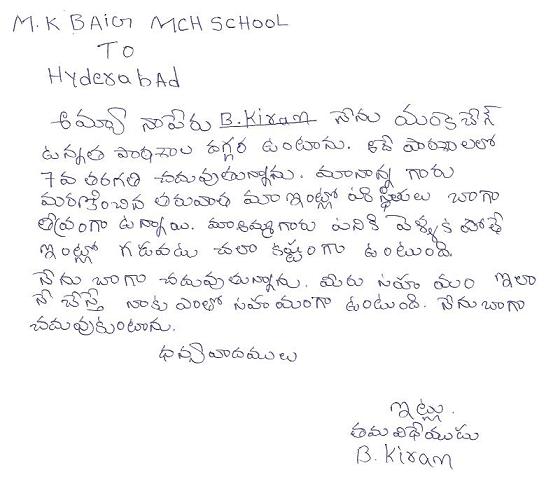 M.K BAIG MCH SCHOOL
TO
HyderabAd
అమ్మా నాపేరు B.Kiran నేను యంకె బేగ్
ఉన్నత పాఠశాల దగ్గర ఉంటాను. ఇదే పాఠశాలలో
7వ తరగతి చదువుతున్నాను. మానాన్న గారు
మరణించిన తరువాత మా ఇంట్లో పరిస్థితులు బాగా
తీవ్రంగా ఉన్నాయి. మాఅమ్మగారు పనికి వెళ్ళక పోతే
ఇంట్లో గడువడు చలా కష్టంగా ఉంటుంది.
నేను బాగా చదువుతున్నాను. మీరు సహా యం ఇలా
నే చేస్తే నాకు ఎంతో సహాయంగా ఉంటుంది. నేను బాగా
చదువుకుంటాను.
ధన్యవాదములు
ఇట్లు.
తమ విధేయుడు
B. Kiran